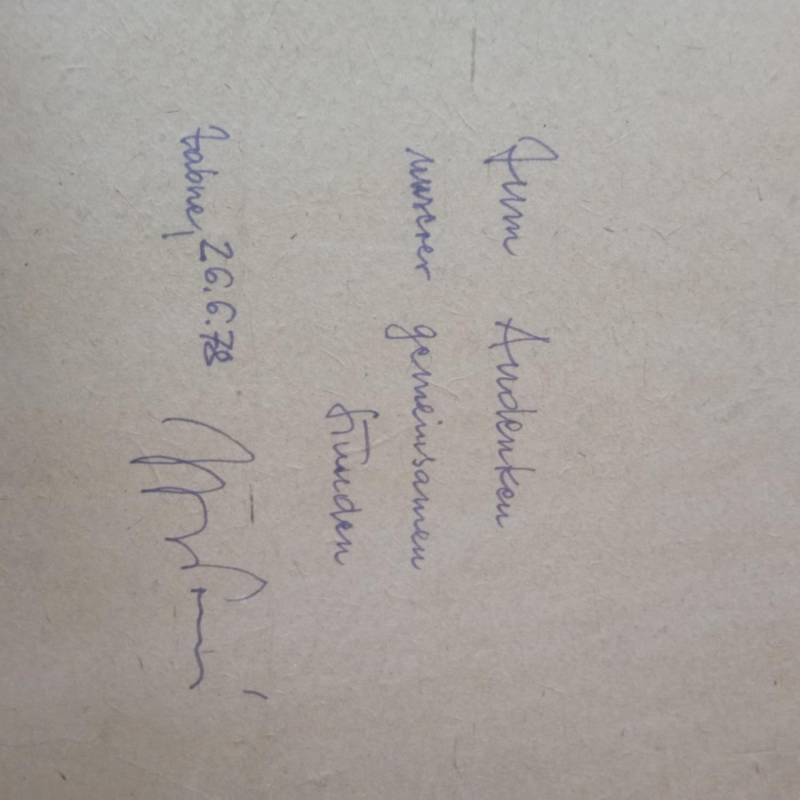 Zum Andenken
unserer gemeinsamen
Stunden
26.6.78